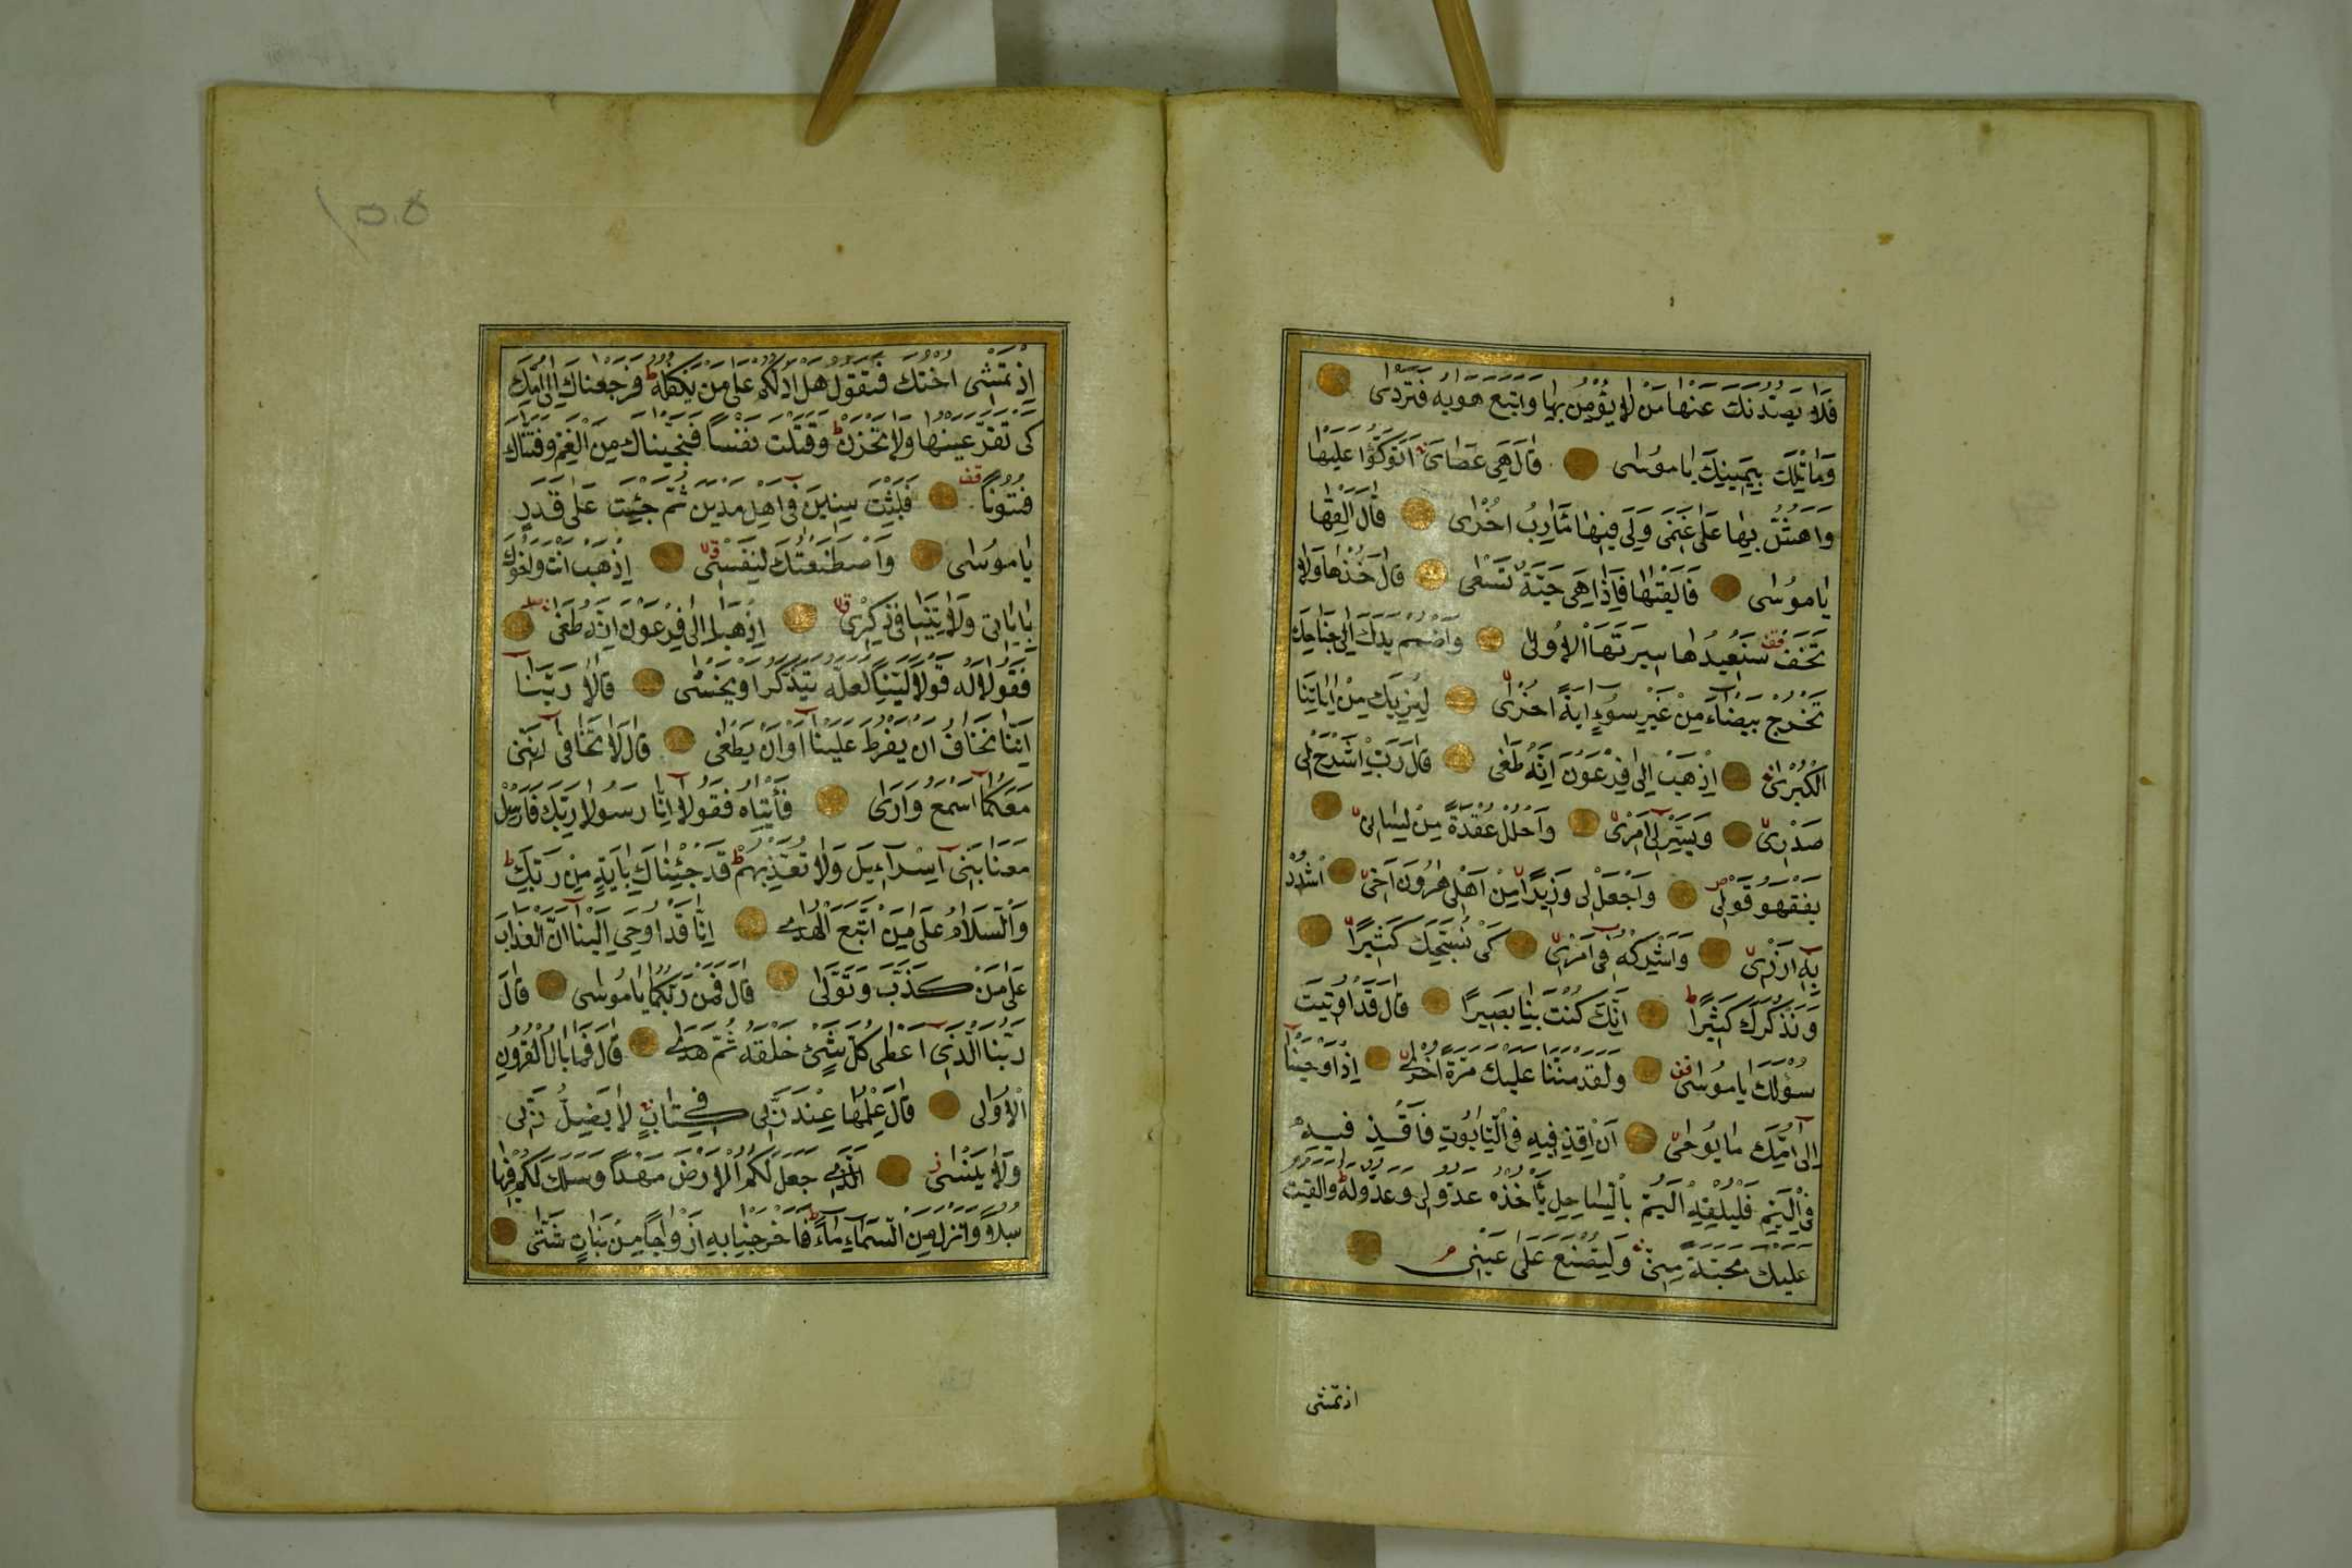 فَلَا يَصُدَّنَّكَ عَنْهَا مَنْ لَا يُؤْمِنُ بِهَا وَاتَّبَعَ هَوٰيهُ فَتَرْدٰى
وَمَا تِلْكَ بِيَمِينِكَ يَا مُوسٰى قَالَ هِيَ عَصَايَ اَتَوَكَّؤُا عَلَيْهَا
وَاَهُشُّ بِهَا عَلٰى غَنَمِى وَلِىَ فِيهَا مَاٰرِبُ اُخْرٰى قَالَ اَلْقِهَا
يَا مُوسٰى فَاَلْقٰيهَا فَاِذَا هِىَ حَيَّةٌ تَسْعٰى قَالَ خُذْهَا وَلَا
تَخَفْ قف سَنُعِيدُهَا سِيرَتَهَا الْاُولٰى وَاضْمُمْ يَدَكَ اِلٰى جَنَاحِكَ
تَخْرُجْ بَيْضَاءَ مِنْ غَيْرِ سُوءٍ اٰيَةً اُخْرٰى لِنُرِيَكَ مِنْ اٰيَاتِنَا
الْكُبْرٰى اِذْهَبْ اِلٰى فِرْعَوْنَ اِنَّهُ طَغٰى قَالَ رَبِّ اشْرَحْ لِى
صَدْرِى وَيَسِّرْ لِى اَمْرِى وَاحْلُلْ عُقْدَةً مِنْ لِسَانِى
يَفْقَهُوا قَوْلِى وَاجْعَلْ لِى وَزِيرًا مِنْ اَهْلِى هٰرُونَ اَخِى اُشْدُدْ
بِهِ اَزْرِى وَاَشْرِكْهُ فِى اَمْرِى كَىْ نُسَبِّحَكَ كَثِيرًا
وَنَذْكُرَكَ كَثِيرًا اِنَّكَ كُنْتَ بِنَا بَصِيرًا قَالَ قَدْ اُوتِيتَ
سُؤْلَكَ يَا مُوسٰى قف وَلَقَدْ مَنَنَّا عَلَيْكَ مَرَّةً اُخْرٰى اِذْ اَوْحَيْنَا
اِلٰى اُمِّكَ مَا يُوحٰى اَنِ اقْذِفِيهِ فِى التَّابُوتِ فَاقْذِفِيهِ
فِى الْيَمِّ فَلْيُلْقِهِ الْيَمُّ بِالسَّاحِلِ يَأْخُذْهُ عَدُوٌّ لِى وَعَدُوٌّ لَهُ وَاَلْقَيْتُ
عَلَيْكَ مَحَبَّةً مِنِّى وَلِتُصْنَعَ عَلٰى عَيْنِى
اذ تمشى
اِذْ تَمْشِى اُخْتُكَ فَتَقُولُ هَلْ اَدُلُّكُمْ عَلٰى مَنْ يَكْفُلُهُ ط فَرَجَعْنَاكَ اِلٰى اُمِّكَ
كَىْ تَقَرَّ عَيْنُهَا وَلَا تَحْزَنَ ط وَقَتَلْتَ نَفْسًا فَنَجَّيْنَاكَ مِنَ الْغَمِّ وَفَتَنَّاكَ
فُتُونًا قف فَلَبِثْتَ سِنِينَ فِى اَهْلِ مَدْيَنَ ثُمَّ جِئْتَ عَلٰى قَدَرٍ
يَا مُوسٰى وَاصْطَنَعْتُكَ لِنَفْسِى اِذْهَبْ اَنْتَ وَاَخُوكَ
بِاٰيَاتِى وَلَا تَنِيَا فِى ذِكْرِى اِذْهَبَا اِلٰى فِرْعَوْنَ اِنَّهُ طَغٰى
فَقُولَا لَهُ قَوْلًا لَيِّنًا لَعَلَّهُ يَتَذَكَّرُ اَوْ يَخْشٰى قَالَا رَبَّنَا
اِنَّنَا نَخَافُ اَنْ يَفْرُطَ عَلَيْنَا اَوْ اَنْ يَطْغٰى قَالَ لَا تَخَافَا اِنَّنِى
مَعَكُمَا اَسْمَعُ وَاَرٰى فَأْتِيَاهُ فَقُولَا اِنَّا رَسُولَا رَبِّكَ فَاَرْسِلْ
مَعَنَا بَنِى اِسْرَاءِيلَ وَلَا تُعَذِّبْهُمْ ط قَدْ جِئْنَاكَ بِاٰيَةٍ مِنْ رَبِّكَ ط
وَالسَّلَامُ عَلٰى مَنِ اتَّبَعَ الْهُدٰى اِنَّا قَدْ اُوحِىَ اِلَيْنَا اَنَّ الْعَذَابَ
عَلٰى مَنْ كَذَّبَ وَتَوَلّٰى قَالَ فَمَنْ رَبُّكُمَا يَا مُوسٰى قَالَ
رَبُّنَا الَّذِى اَعْطٰى كُلَّ شَىْءٍ خَلْقَهُ ثُمَّ هَدٰى قَالَ فَمَا بَالُ الْقُرُونِ
الْاُولٰى قَالَ عِلْمُهَا عِنْدَ رَبِّى فِى كِتَابٍ لَا يَضِلُّ رَبِّى
وَلَا يَنْسٰى اَلَّذِى جَعَلَ لَكُمُ الْاَرْضَ مَهْدًا وَسَلَكَ لَكُمْ فِيهَا
سُبُلًا وَاَنْزَلَ مِنَ السَّمَاءِ مَاءً ط فَاَخْرَجْنَا بِهِ اَزْوَاجًا مِنْ نَبَاتٍ شَتّٰى